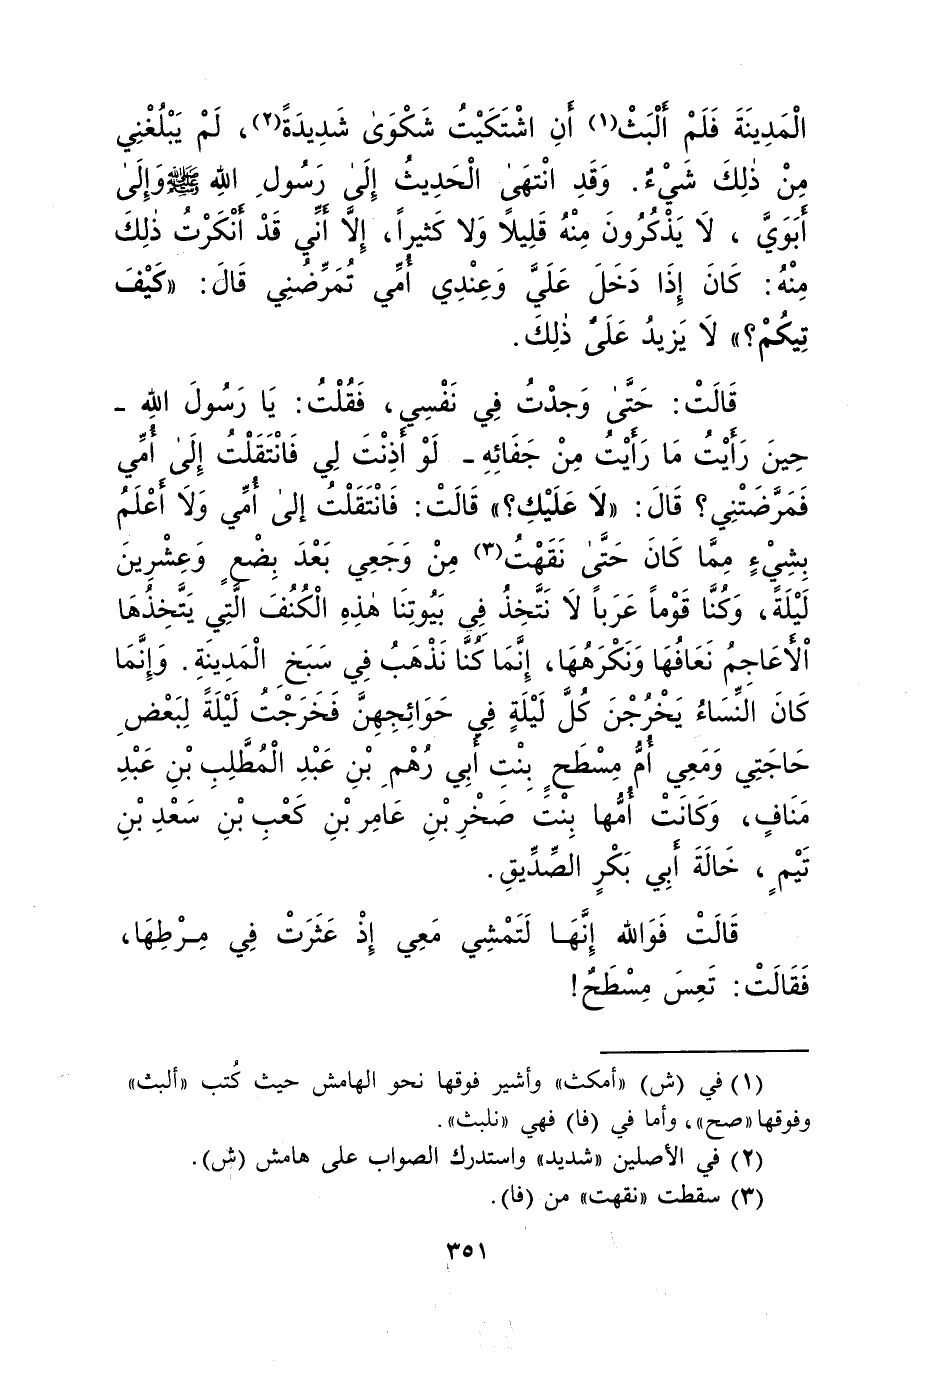 الْمَدِينَةَ فَلَمْ أَلْبَثْ(١) أَنِ اشْتَكَيْتُ شَكْوَىٰ شَدِيدَةً(٢)، لَمْ يَبْلُغْنِي
مِنْ ذٰلِكَ شَيْءٌ. وَقَدِ انْتَهَىٰ الْحَدِيثُ إِلَىٰ رَسُولِ اللهِ ﷺ وَإِلَىٰ
أَبَوَيَّ ، لَا يَذْكُرُونَ مِنْهُ قَلِيلًا وَلَا كَثِيراً، إِلَّا أَنِّي قَدْ أَنْكَرْتُ ذٰلِكَ
مِنْهُ: كَانَ إِذَا دَخَلَ عَلَيَّ وَعِنْدِي أُمِّي تُمَرِّضُنِي قَالَ: «كَيْفَ
تِيكُمْ؟» لَا يَزِيدُ عَلَىٰ ذٰلِكَ.
قَالَتْ: حَتَّىٰ وَجِدْتُ فِي نَفْسِي، فَقُلْتُ: يَا رَسُولَ اللهِ -
حِينَ رَأَيْتُ مَا رَأَيْتُ مِنْ جَفَائِهِ - لَوْ أَذِنْتَ لِي فَانْتَقَلْتُ إِلَىٰ أُمِّي
فَمَرَّضَتْنِي؟ قَالَ: «لَا عَلَيْكِ؟» قَالَتْ: فَانْتَقَلْتُ إِلىٰ أُمِّي وَلَا أَعْلَمُ
بِشِيْءٍ مِمَّا كَانَ حَتَّىٰ نَقَهْتُ(٣) مِنْ وَجَعِي بَعْدَ بِضْعٍ وَعِشْرِينَ
لَيْلَةً، وَكُنَّا قَوْماً عَرَباً لَا نَتَّخِذُ فِي بَيُوتِنَا هٰذِهِ الْكُنُفَ الَّتِي يَتَّخِذُهَا
الْأَعَاجِمُ نَعَافُهَا وَنَكْرَهُهَا، إِنَّمَا كُنَّا نَذْهَبُ فِي سَبَخِ الْمَدِينَةِ. وَإِنَّمَا
كَانَ النِّسَاءُ يَخْرُجْنَ كُلَّ لَيْلَةٍ فِي حَوَائِجِهِنَّ فَخَرَجْتُ لَيْلَةً لِبَعْضِ
حَاجَتِي وَمَعِي أُمُّ مِسْطَحٍ بِنْتِ أَبِي رُهْمِ بْنِ عَبْدِ الْمُطَّلِبِ بْنِ عَبْدِ
مَنَافٍ، وَكَانَتْ أُمُّها بِنْتَ صَخْرِ بْنِ عَامِرِ بْنِ كَعْبِ بْنِ سَعْدِ بْنِ
تَيْمٍ ، خَالَةَ أَبِي بَكْرٍ الصِّدِّيقِ.
قَالَتْ فَوَالله إِنَّهَا لَتَمْشِي مَعِي إِذْ عَثَرَتْ فِي مِرْطِهَا،
فَقَالَتْ: تَعِسَ مِسْطَحٌ!
(١) في (ش) «أمكث» وأشير فوقها نحو الهامش حيث كُتب «ألبث»
وفوقها «صح»، وأما في (فا) فهي «نلبث».
(٢) في الأصلين «شديد» واستدرك الصواب على هامش (ش).
(٣) سقطت «نقهت» من (فا).
٣٥١